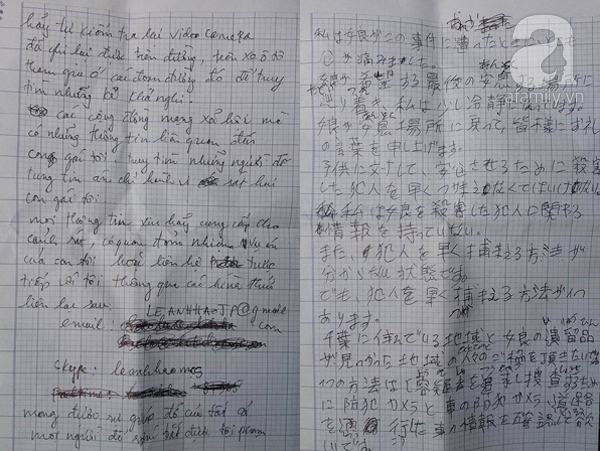 hãy tự kiểm tra lại video camera
đã ghi lại được trên đường, trên xe ô tô
tham gia ở các đoạn đường đó để truy
tìm những kẻ khả nghi.
các cộng đồng mạng xã hội mà
có những thông tin liên quan đến
con gái tôi, truy tìm những người đó
tung tin
sát hại
con gái tôi.
mọi thông tin xin hãy cung cấp cho
cảnh sát, cơ quan đảm nhiệm vụ án
của con tôi hoặc liên hệ trực
tiếp tới tôi thông qua các hình thức
liên lạc sau:
LE,ANHHAOJP@gmail
email:
com
Skype: leanhhaomes
mong được sự giúp đỡ của tất cả
mọi người để sớm bắt được tội phạm
私は女良がこの事件に遭ったときとても
心が痛みました。
最後の安息する場所に
たどり着き、私は少し冷静
女良が安息場所に戻って皆様にお礼
の言葉を申し上げます。
子供に対して、安心させるために殺害
した犯人を早くつかまえなくてはいけない。
私は女良を殺害した犯人に関わる
情報を持っていない。
また、犯人を早く捕まえる方法が
分からない状態です。
でも、犯人を早く捕まえる方法が1つ
あります。
千葉に住んでいる地域と女良の遺留品
が見つかった地域の人々のご協力を頂きたい
1つの方法は1容疑者を捜し捜査するため
に防犯カメラと車の防犯カメラ道路
を通行した車の情報を確認して欲
しいです。
afamily.vn